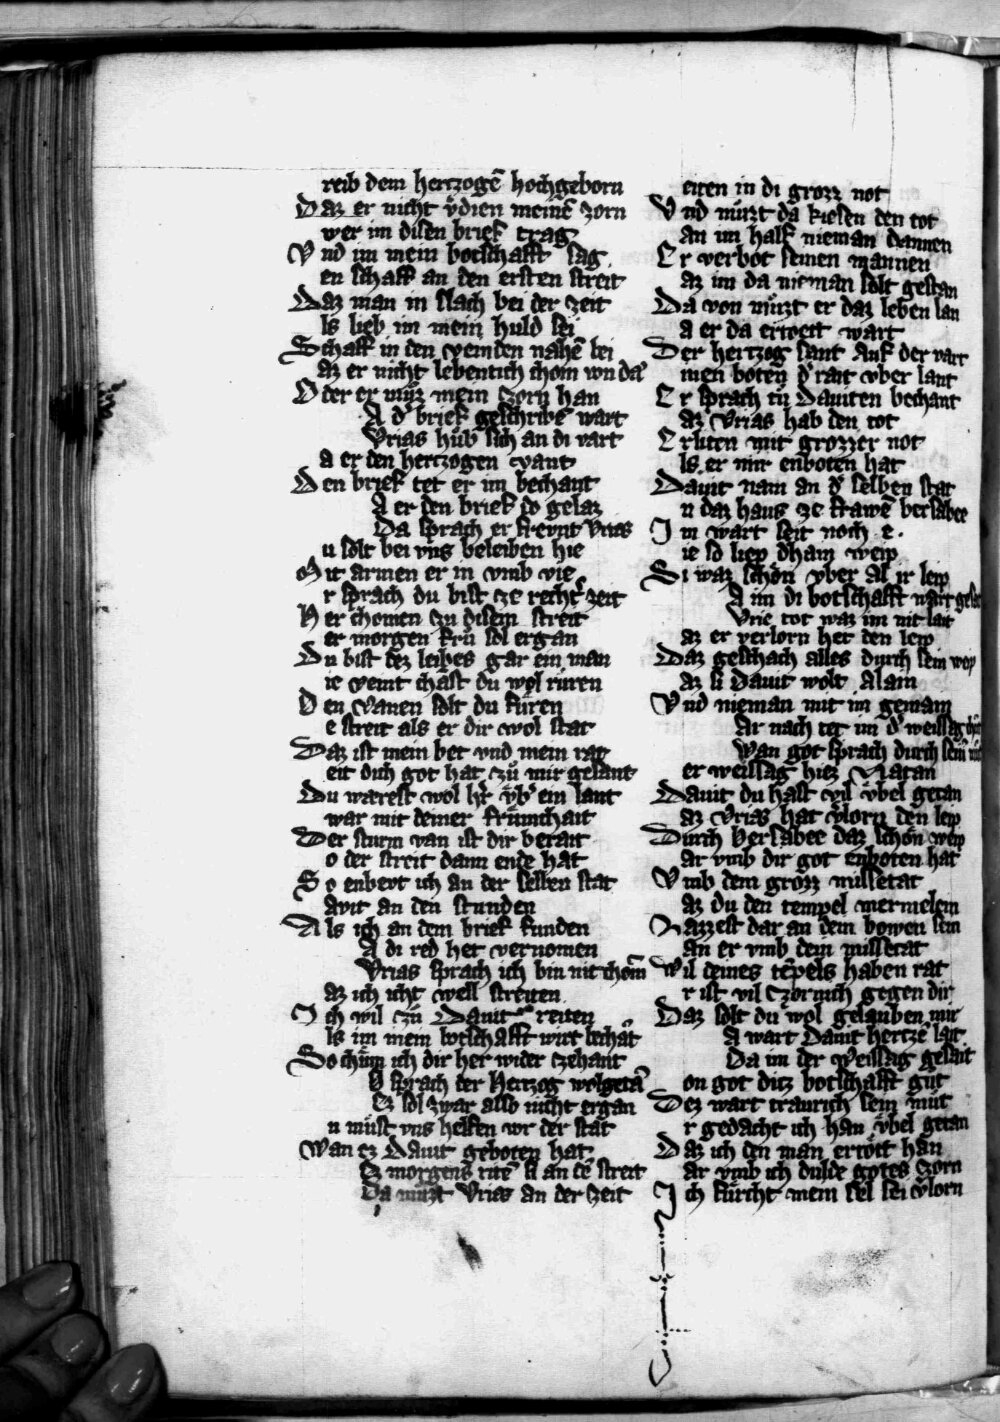 reib dem hertzogē hochgeborn
Daz er nicht v̓dien meinē zorn
wer im disen brief trag
Vnd im mein botschafft sag
en schaff an den ersten streit
Daz man in slach bei der zeit
ls lieb im mein huld sei
Schaff in den veinden nahē bei
az er nicht lebentich chom von da
Oder er muͤz mein zorn han
A d̓ brief geschribē wart
Vrias huͤb sich an di vart
a er den hertzogen vant
Den brief tet er im bechant
A er den brief do gelaz
Da sprach er frevnt Vrias
u solt bei vns beleiben hie
Mit armen er in vmb vie
r sprach du bist ze recht̓ zeit
Her chomen czu disem streit
er morgen fruͤ sol ergan
Du bist dez leibes gar ein man
ie veint chast du wol ruͤren
Den vanen solt du fuͤren
e streit als er dir wol stat
Daz ist mein bet vnd mein rat
eit dich got hat zuͤ mir gesant
Du warest wol h̓r vb̓ ein lant
war mit deiner frumchait
Der sturm van ist dir berait
o der streit dann ende hat
So enbevt ich an der selben stat
avit an den stunden
Als ich an dem brief funden
A di red het vernomen
Vrias sprach ich bin nit chom̄
az ich icht well streiten
Ich wil czuͤ Dauit reiten
ls im mein botschafft wirt bechāt
So chuͤm ich dir her wider czehant
O sprach der Hertzog wolgetā
Ez sol zwar also nicht ergan
u muͤst vns helfen vor der stat
Wan ez Dauit geboten hat
Ez morgens ritē si an dē streit
Da muͤst Vrias an der zeit
eiten in di grozz not
Vnd muͤzt da kiesen den tot
an im half nieman dannen
Er verbot seinen mannen
az im da nieman solt gestan
Da von muͤzt er daz leben lan
a er da ertoett wart
Der hertzog sant Auf der vart
inen boten d̓ rait vber lant
Er sprach tu Dauiten bechant
az Vrias hab den tot
Erliten mit grozzer not
ls er mir enboten hat
Dauit nam an d̓ selben stat
n daz haus ze frawē bersabee
Im wart seit noch e
ie so liep dhain weip
Si waz schoͤn vber al ir leip
A im di botschafft wart geseit
Vrie tot waz im nit lait
az er verlorn het den leip
Daz geschach alles durch sein weip
az si Dauit wolt Alain
Vnd nieman mit im gemain
Ar nach tet im d̓ weissag
Wan got sprach durch sein
er weissag hiez Natan
Dauit du hast vil vbel getan
az Vrias hat v̓lorn den leip
Durch Bersabee daz schoͤn weip
ar vmb dir got enboten hat
Vmb dem grozz missetat
az du den tempel mermelein
Nazzest dar an dem bowen sein
an er vmb dem missetat
Wil deines tēpels haben rat
r ist vil czornich gegen dir
Daz solt du wol gelauben mir
A wart Dauit hertze lait
Da im der Weissag gesait
on got ditz botschafft gut
Dez wart traurich sein mut
r gedacht ich han vbel getan
Daz ich den man ertoͤtt han
ar vmb ich dulde gotes zorn
Ich fuͤrcht mein sel sei v̓lorn